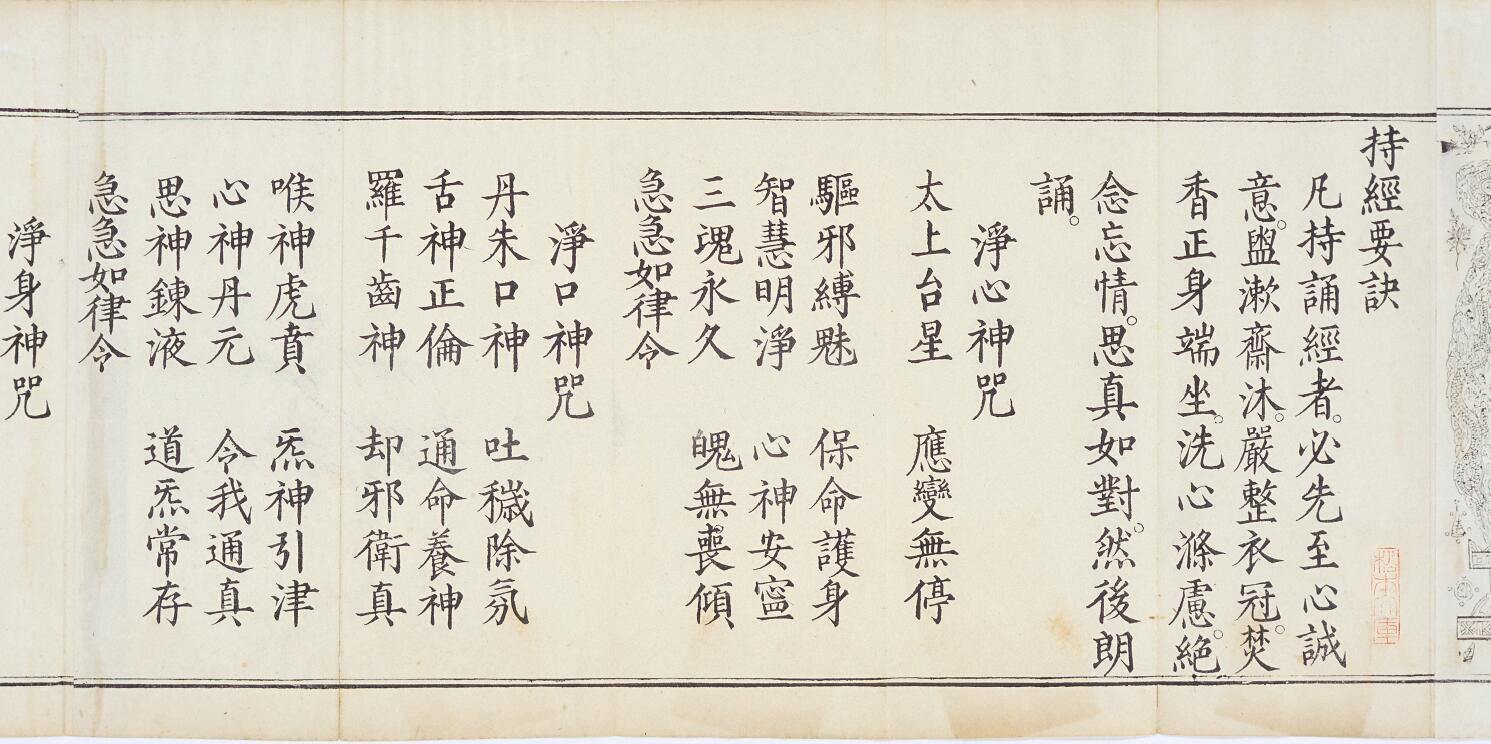 持經要訣
凡持誦經者。必先至心誠
意。盥漱齋沐。嚴整衣冠。焚
香正身端坐。洗心滌慮。絕
念忘情。思真如對。然後朗
誦。
淨心神咒
太上台星 應變無停
驅邪縛魅 保命護身
智慧明淨 心神安寧
三魂永久 魄無喪傾
急急如律令
淨口神咒
丹朱口神 吐穢除氛
舌神正倫 通命養神
羅千齒神 却邪衛真
喉神虎賁 炁神引津
心神丹元 令我通真
思神鍊液 道炁常存
急急如律令
淨身神咒